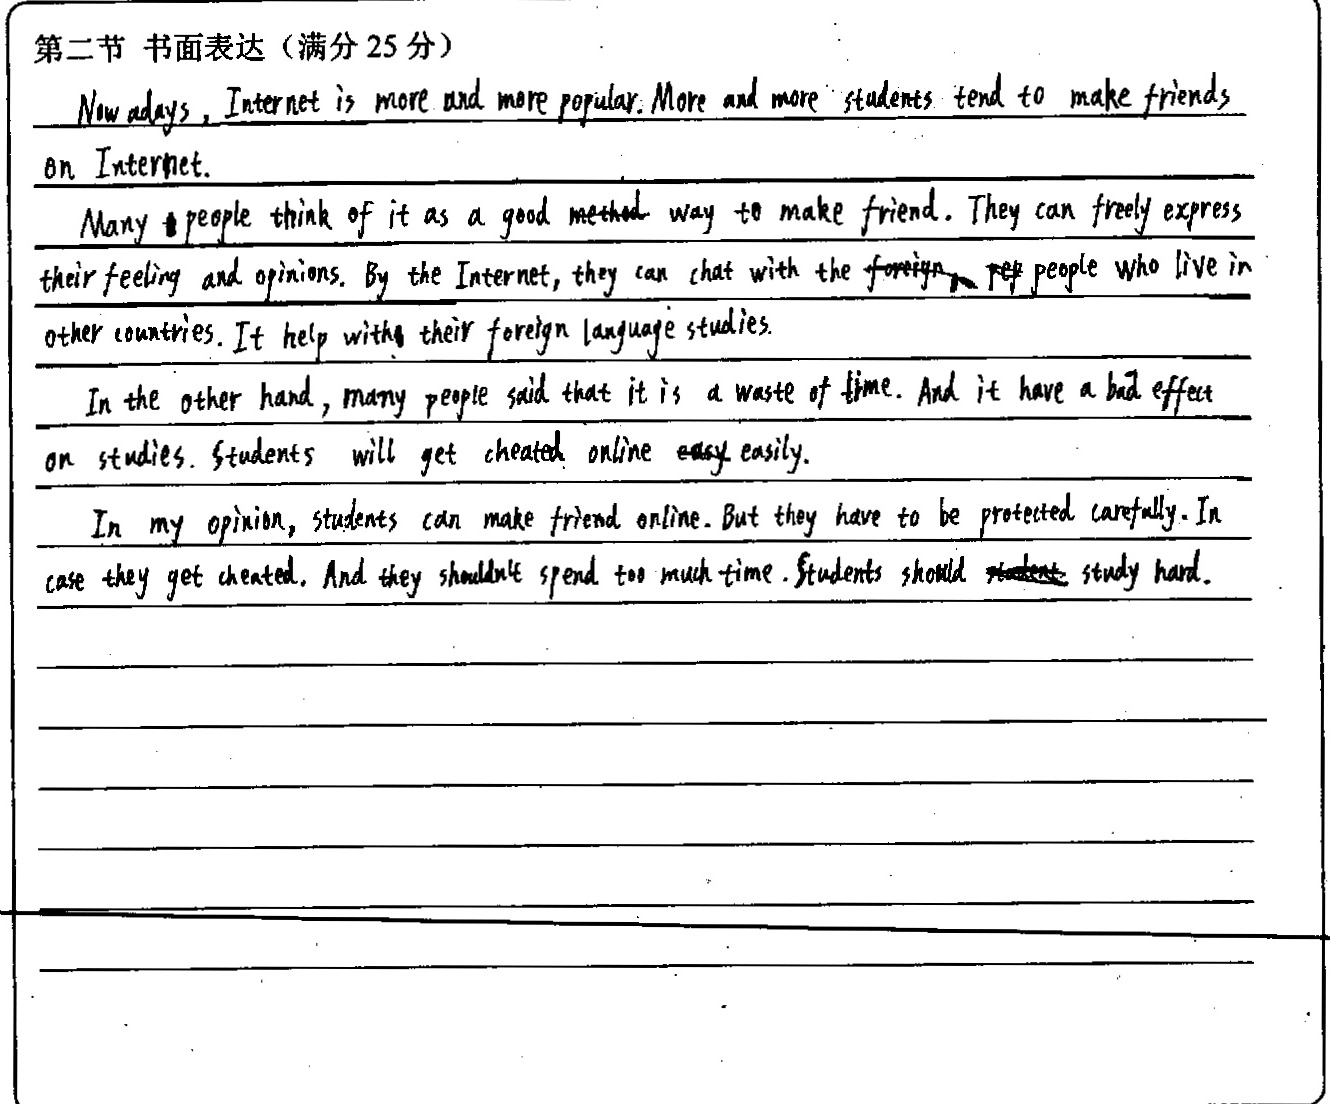 第二节 书面表达（满分 25 分）
Nowadays, Internet is more and more popular. More and more students tend to make friends
on Internet.
Many people think of it as a good method way to make friend. They can freely express
their feeling and opinions. By the Internet, they can chat with the foreign pep people who live in
other countries. It help with their foreign language studies.
In the other hand, many people said that it is a waste of time. And it have a bad effect
on studies. Students will get cheated online easy easily.
In my opinion, students can make friend online. But they have to be protected carefully. In
case they get cheated. And they shouldn't spend too much time. Students should student study hard.